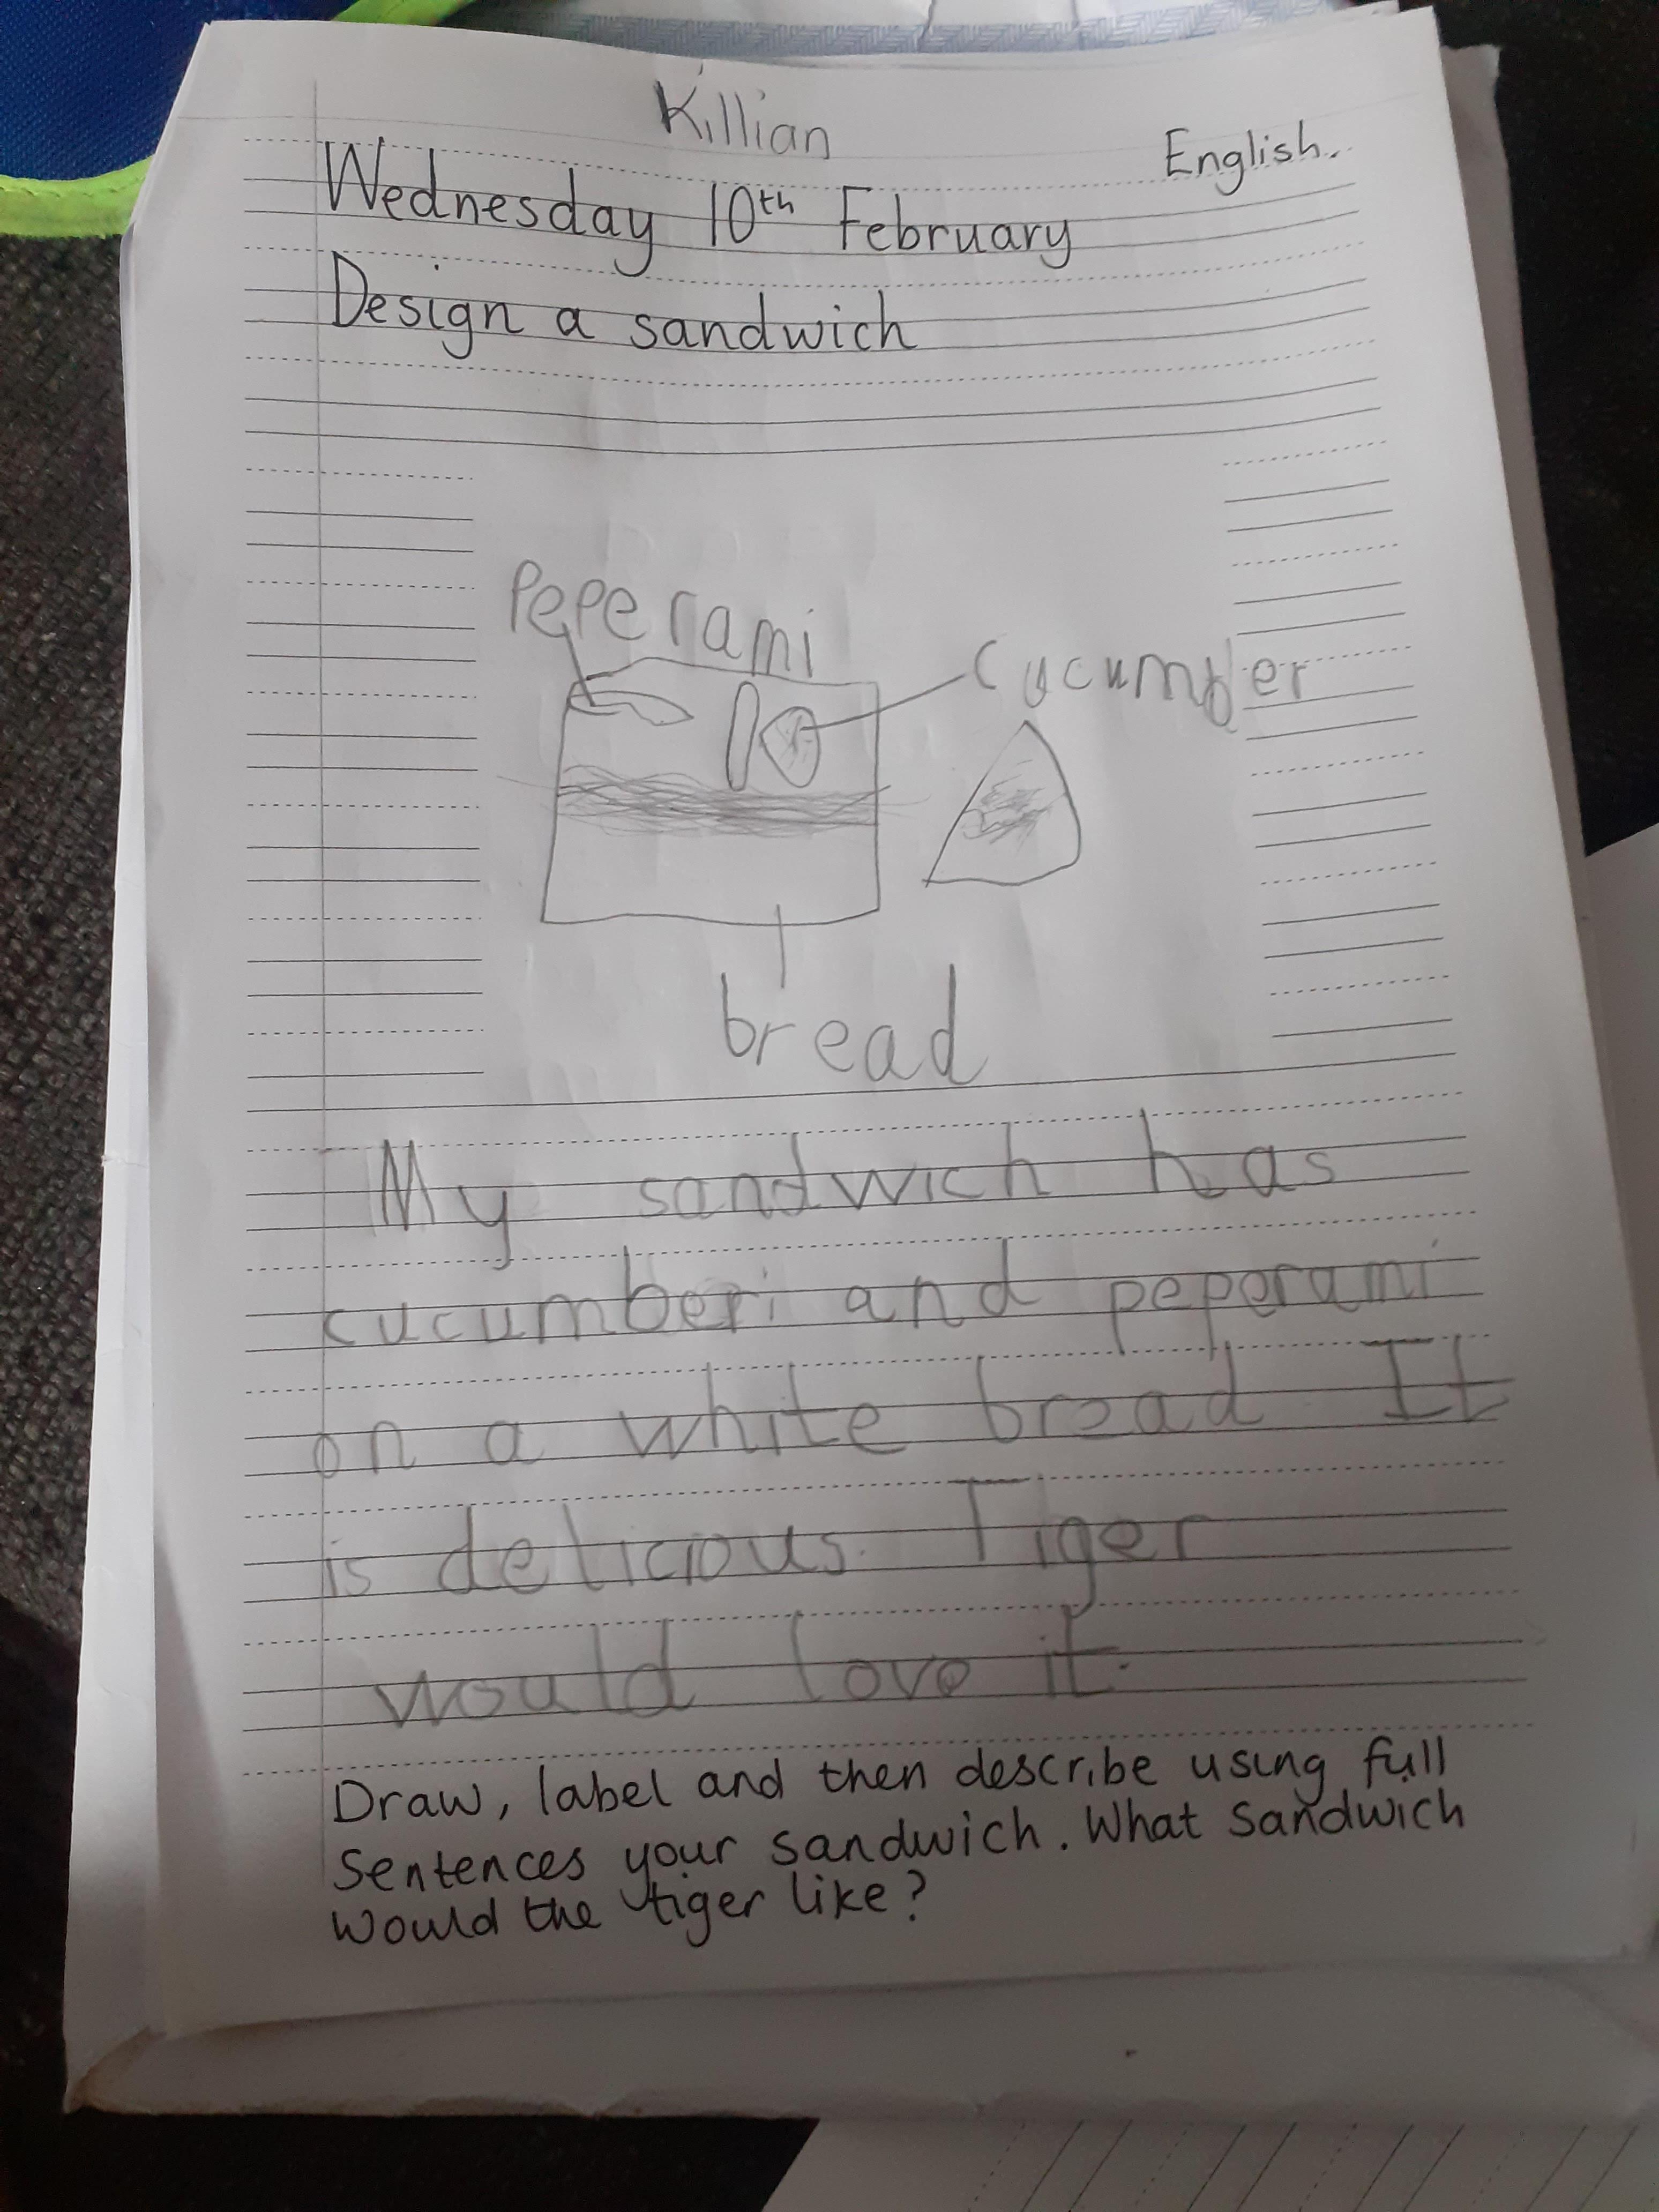 Killian
English.
Wednesday 10th February
Design a sandwich
Peperami
cucumber
bread
My sandwich has
cucumberi and peperami
on a white bread It
is delicious. Tiger
would love it.
Draw, label and then describe using full
sentences your sandwich. What sandwich
would the tiger like?